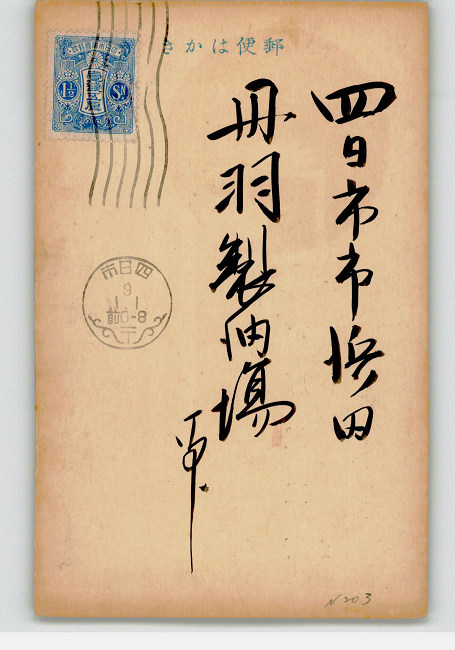 郵便はかき
四日市市浜田
丹羽製油場
1½ Sn
四日市
9
1.1
前0-8
N203